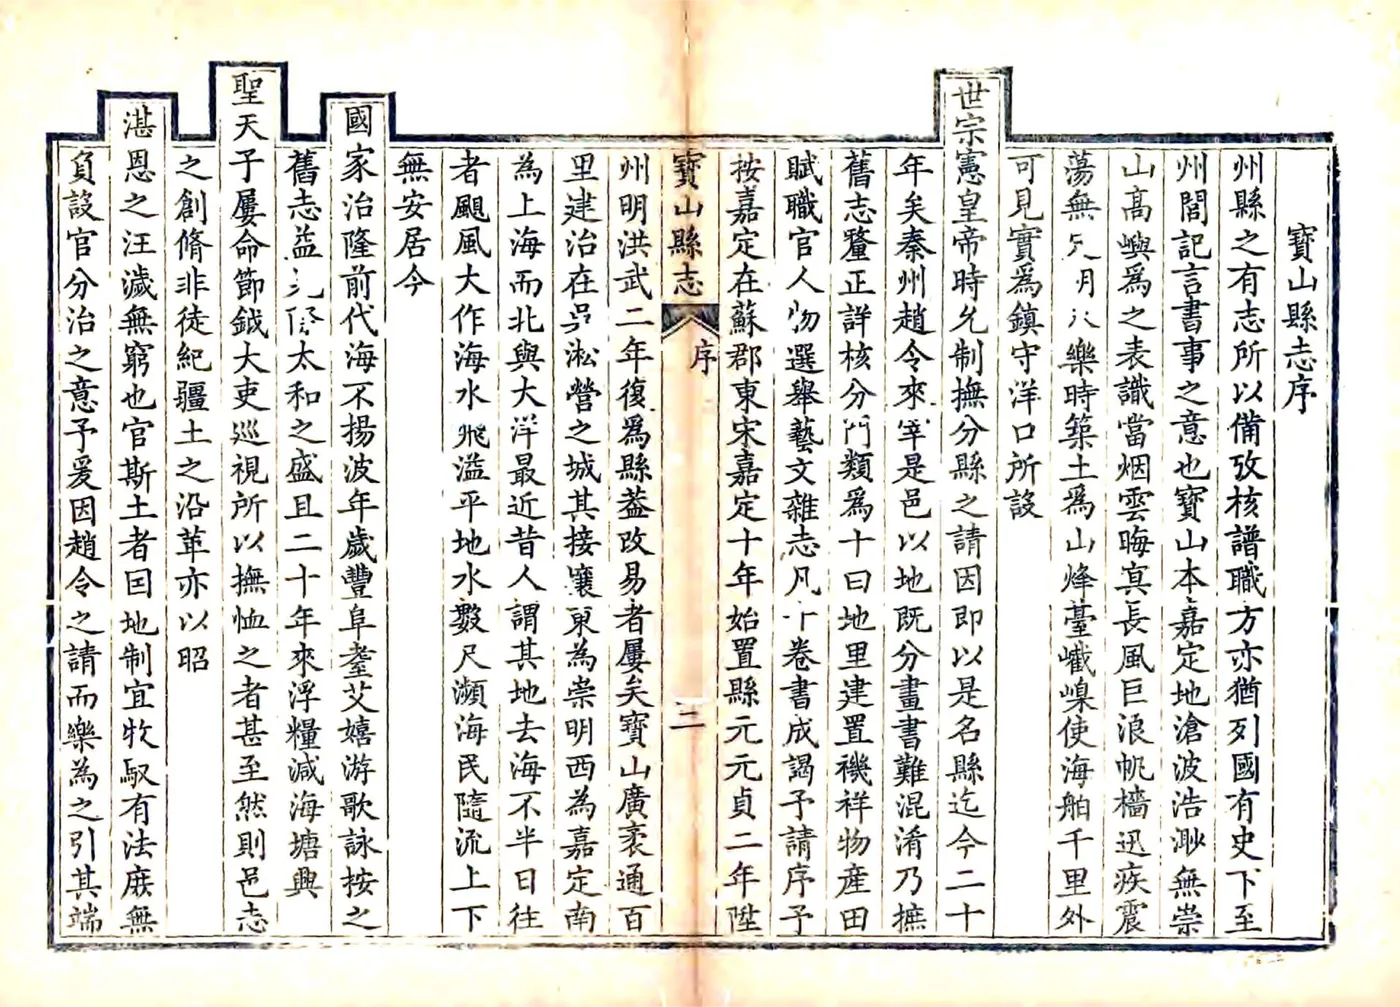 寶山縣志序
州縣之有志所以備攷核譜職方亦猶列國有史下至
州閭記言書事之意也寶山本嘉定地滄波浩渺無崇
山高嶼爲之表識當烟雲晦冥長風巨浪帆檣迅疾震
蕩無月樂時築土爲山烽臺巀嵲使海舶千里外
可見實爲鎮守洋口所設
世宗憲皇帝時允制撫分縣之請因即以是名縣迄今二十
年矣秦州趙令來宰是邑以地既分畫書難混淆乃摭
舊志釐正詳核分門類爲十曰地里建置禨祥物産田
賦職官人物選舉藝文雜志凡十卷書成謁予請序予
按嘉定在蘇郡東宋嘉定十年始置縣元元貞二年陞
寶山縣志
序
二
州明洪武二年復爲縣葢改易者屢矣寶山廣袤通百
里建治在吳淞營之城其接壤東為崇明西為嘉定南
為上海而北與大洋最近昔人謂其地去海不半日往
者颶風大作海水飛溢平地水數尺瀕海民隨流上下
無安居今
國家治隆前代海不揚波年歲豐阜耋艾嬉游歌詠按之
舊志益太和之盛且二十年來浮糧減海塘興
聖天子屢命節鉞大吏巡視所以撫恤之者甚至然則邑志
之創脩非徒紀疆土之沿革亦以昭
湛恩之汪濊無窮也官斯土者因地制宜牧馭有法庶無
負設官分治之意予爰因趙令之請而樂為之引其端